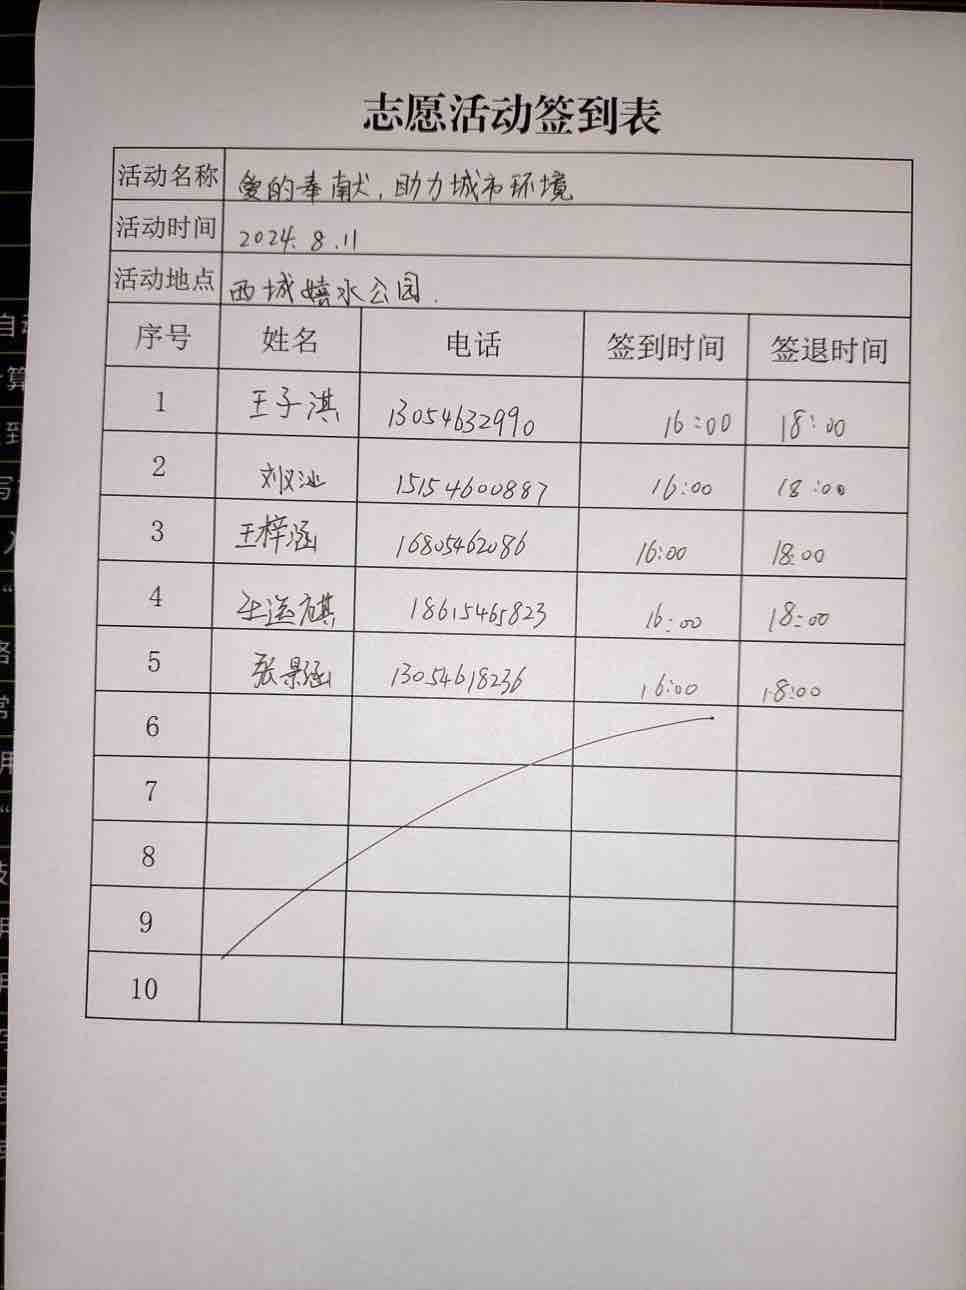 志愿活动签到表
活动名称 爱的奉献，助力城市环境
活动时间 2024.8.11
活动地点 西城嬉水公园.
序号 姓名 电话 签到时间 签退时间
1 王子淇 13054632990 16:00 18:00
2 15154600887 16:00 18:00
3 王梓涵 16805462086 16:00 18:00
4 18615465823 16:00 18:00
5 张景涵 13054618236 16:00 18:00
6
7
8
9
10